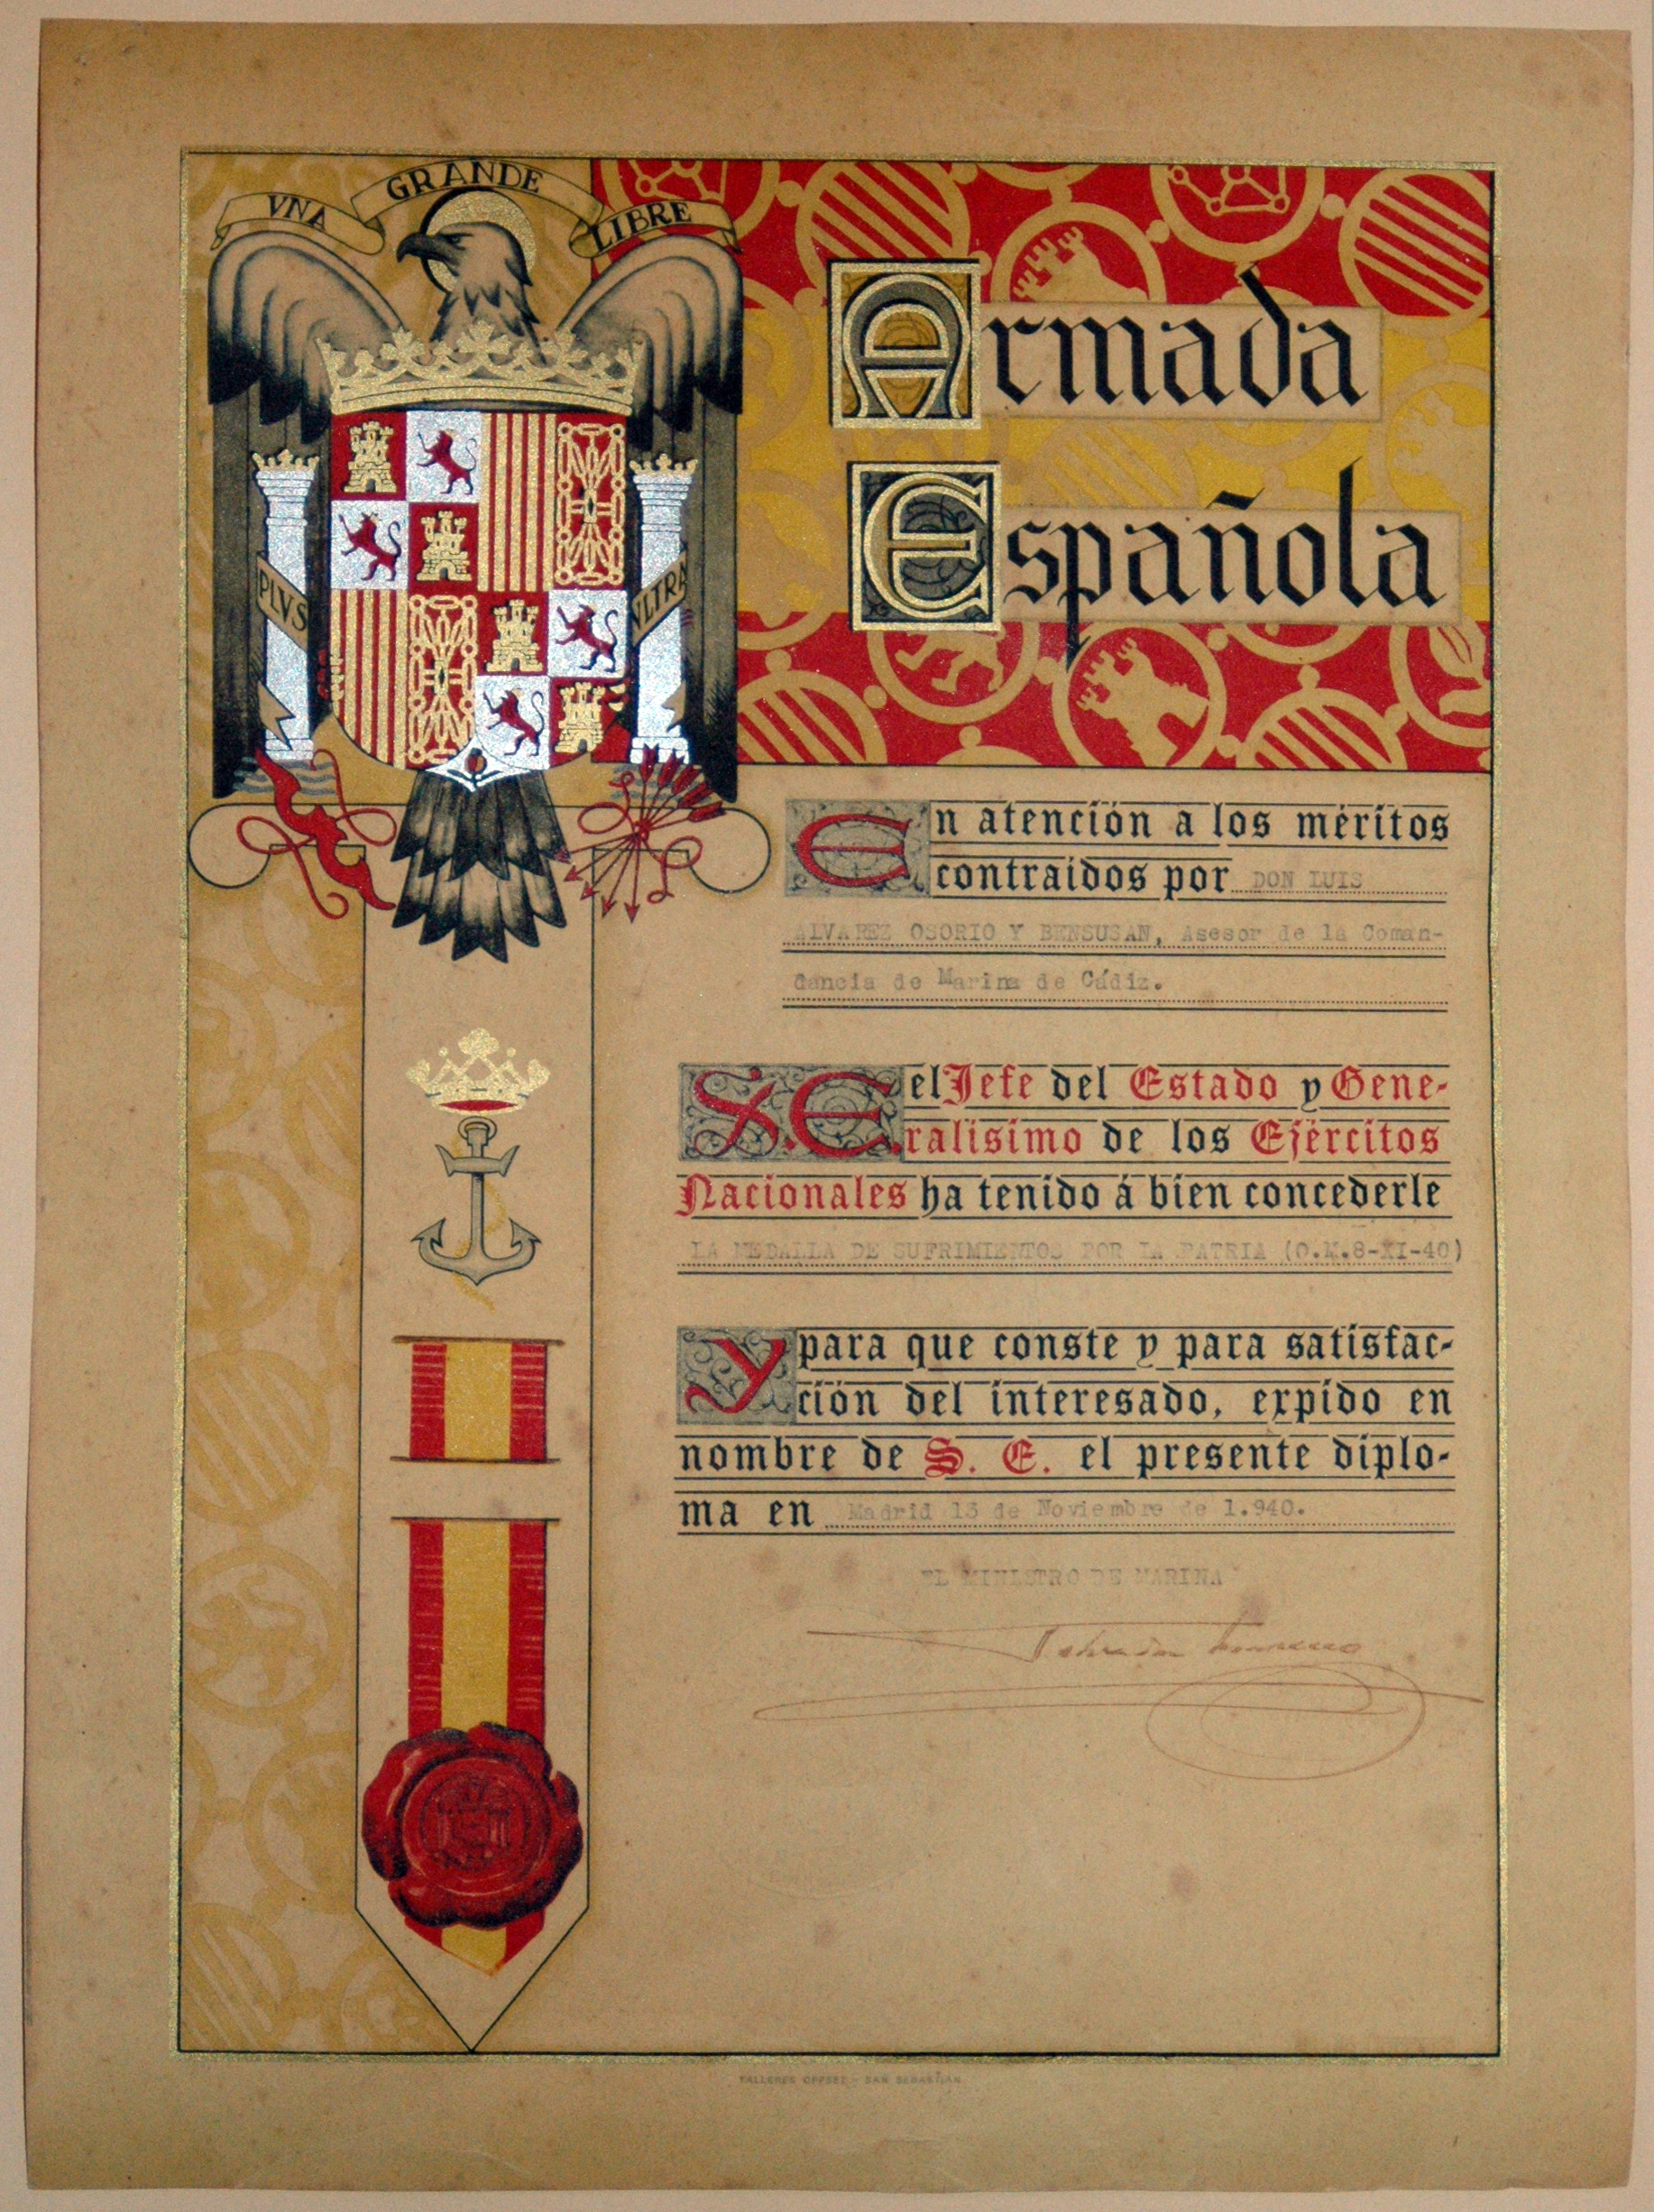 VNA GRANDE LIBRE
Armada
Española
PLVS VLTRA
En atención a los méritos
contraidos por DON LUIS
ALVAREZ OSORIO Y BENSUSAN, Asesor de la Coman-
dancia de Marina de Cádiz.
S.E. el Jefe del Estado y Gene-
ralisimo de los Ejércitos
Nacionales ha tenido á bien concederle
LA MEDALLA DE SUFRIMIENTOS POR LA PATRIA (O.M.8-XI-40)
Y para que conste y para satisfac-
ción del interesado, expido en
nombre de S. E. el presente diplo-
ma en Madrid 13 de Noviembre de 1.940.
EL MINISTRO DE MARINA
TALLERES OFFSET - SAN SEBASTIAN